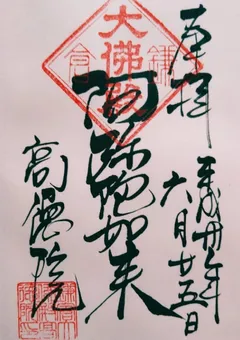 奉拝
平成廿九年
六月廿五日
大佛殿
鎌倉
阿弥陀如来
高徳院